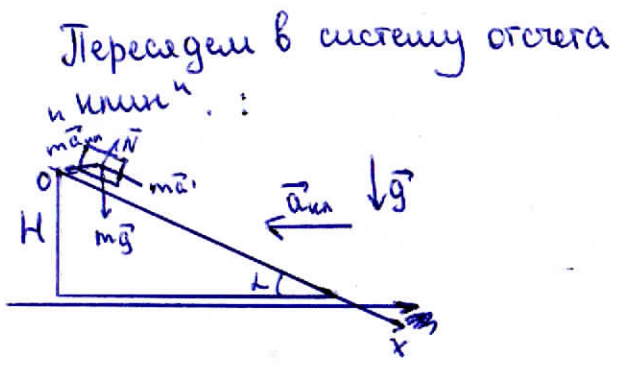 Пересядем в систему отсчета
"клин" . :
ma⃗кл N⃗
O ma⃗'
a⃗кл g⃗
H mg⃗
α
x